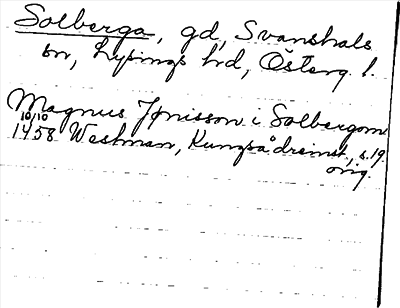 Solberga, gd, Svanshals
sn, Lysings hd, Österg l.
Magnus Jönisson i Solbergom
10/10
1458 Westman, Kungsådreinst, s. 19
orig.